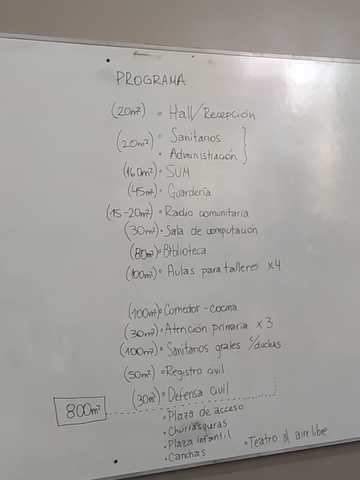 PROGRAMA
(20m²) • Hall/Recepción
(20m²) • Sanitarios
• Administración
(160m²) • SUM
(45m²) • Guardería
(15-20m²) • Radio comunitaria
(30m²) • Sala de computación
(80m²) • Biblioteca
(100m²) • Aulas para talleres x4
(100m²) • Comedor - cocina
(30m²) • Atención primaria x3
(100m²) • Sanitarios grales c/duchas
(50m²) • Registro civil
(30m²) • Defensa civil
800m²
• Plaza de acceso
• Churrasqueras
• Plaza infantil
• Teatro al aire libre
• Canchas